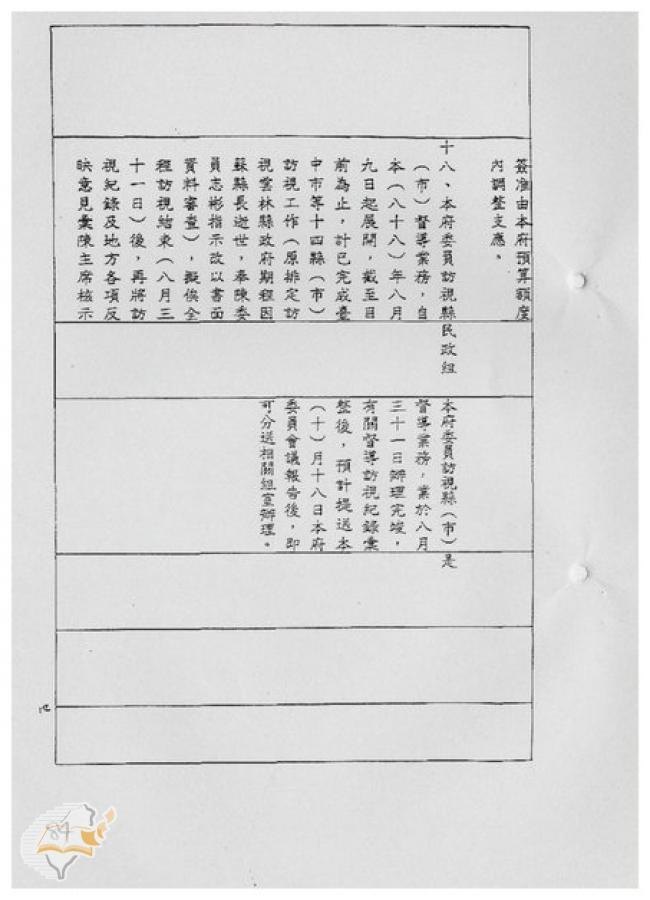 簽准由本府預算額度
內調整支應。
十八、本府委員訪視縣
（市）督導業務，自
本（八十八）年八月
九日起展開，截至目
前為止，計已完成臺
中市等十四縣（市）
訪視工作（原排定訪
視雲林縣政府期程因
蘇縣長逝世，奉陳委
員志彬指示改以書面
資料審查），擬俟全
程訪視結束（八月三
十一日）後，再將訪
視紀錄及地方各項反
映意見彙陳主席核示
民政組
本府委員訪視縣（市）
督導業務，業於八月
三十一日辦理完竣，
有關督導訪視紀錄彙
整後，預計提送本
（十）月十八日本府
委員會議報告後，即
可分送相關組室辦理。
是